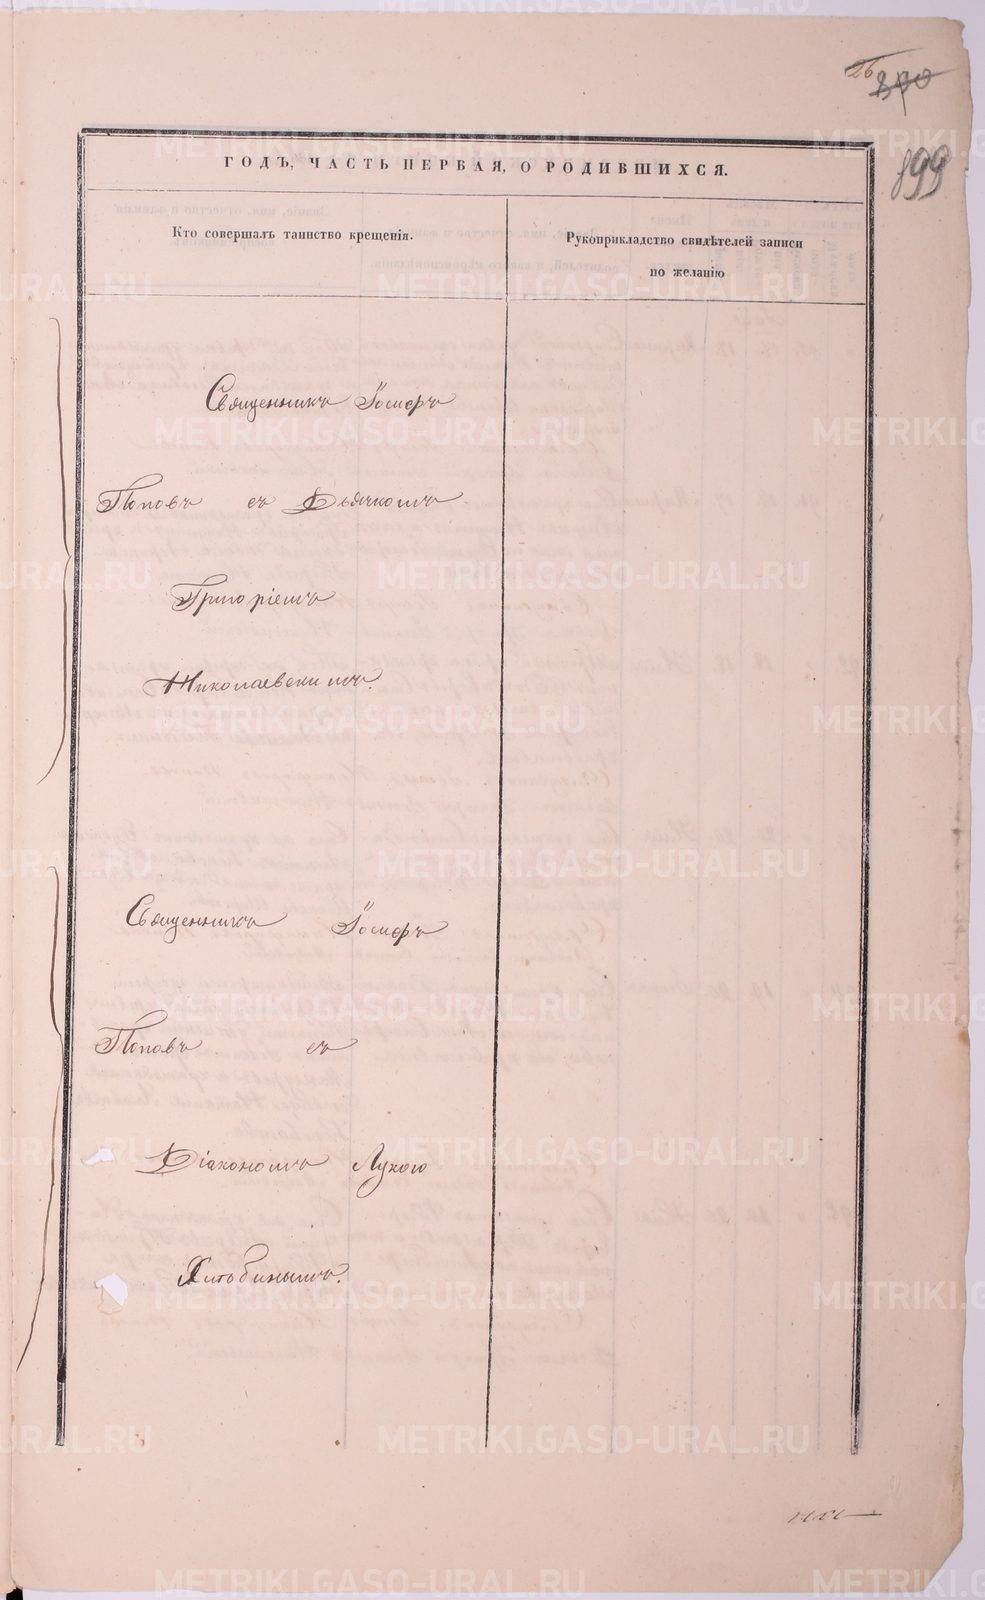 26
899
ГОДЪ, ЧАСТЬ ПЕРВАЯ, О РОДИВШИХСЯ.
Кто совершалъ таинство крещенія.
Рукоприкладство свидѣтелей записи
по желанію
Священникъ
Поповъ съ Дьячкомъ
Григоріемъ
Николаевскимъ.
Священникъ
Поповъ съ
Діакономъ Лукою
METRIKI.GASO-URAL.RU